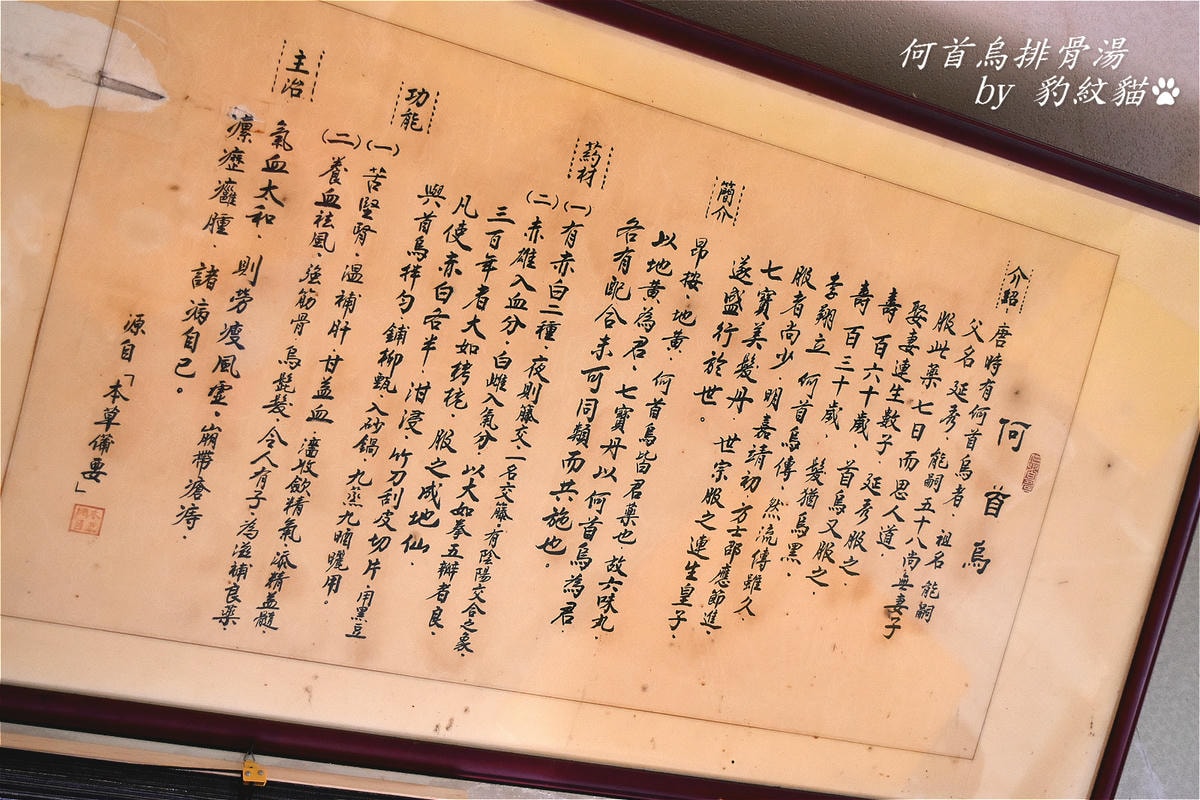 何首烏排骨湯
by 豹紋貓
何首烏
介紹
唐時有何首烏者、祖名能嗣
父名延秀、能嗣五十八尚無妻子
服此藥七日而思人道、
娶妻連生數子、延秀服之、
壽百六十歲、首烏又服之、
壽百三十歲、髮猶烏黑、
李翱立何首烏傳、然流傳雖久、
服者尚少、明嘉靖初、方士邵應節進、
七寶美髮丹、世宗服之連生皇子、
遂盛行於世。
簡介
昂按、地黃、何首烏皆君藥也、故六味丸、
以地黃為君、七寶丹以何首烏為君、
各有配合未可同類而共施也。
药材
(一)有赤白二種、夜則藤交、一名交藤、有陰陽交合之象、
(二)赤雄入血分、白雌入氣分、以大如拳五瓣者良、
三百年者大如栲栳、服之成地仙、
凡使赤白各半、泔浸、竹刀刮皮切片、用黑豆
與首烏拌匀、鋪柳甄、入砂鍋、九蒸九晒曬用。
功能
(一)苦堅腎、溫補肝、甘益血、濇收歛精氣、添精益髓、
(二)養血祛風、強筋骨、烏髭髮、令人有子、為滋補良藥、
主治
氣血太和、則勞瘦風虛、崩帶瘡痔、
瘰癧癰腫、諸病自已。
源自「本草備要」